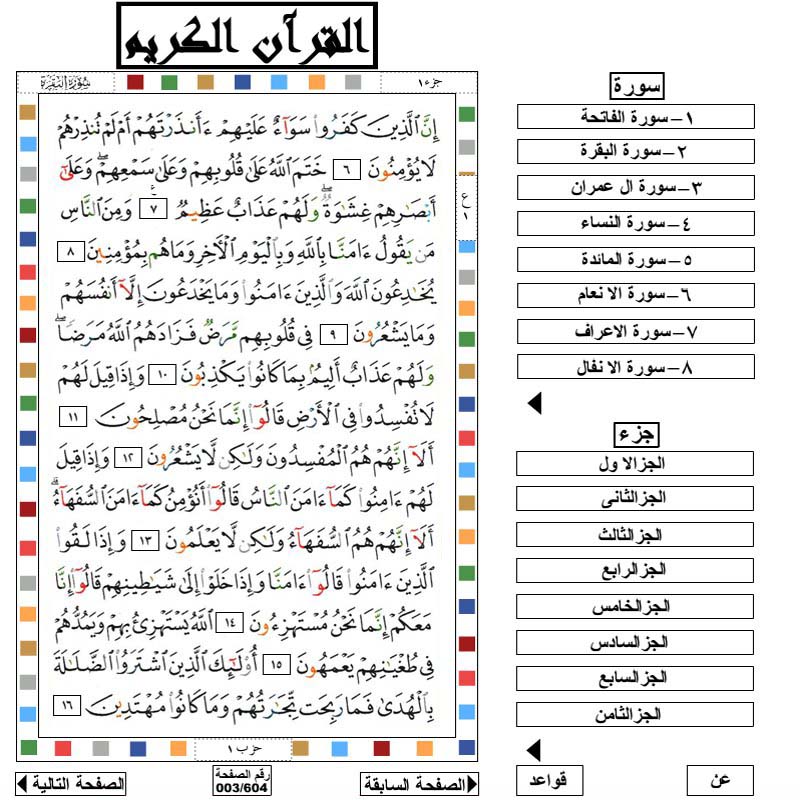 القرآن الكريم
جزء ١
سُورَةُ البَقَرَة
إِنَّ ٱلَّذِينَ كَفَرُوا۟ سَوَآءٌ عَلَيْهِمْ ءَأَنذَرْتَهُمْ أَمْ لَمْ تُنذِرْهُمْ
لَا يُؤْمِنُونَ ٦ خَتَمَ ٱللَّهُ عَلَىٰ قُلُوبِهِمْ وَعَلَىٰ سَمْعِهِمْ ۖ وَعَلَىٰٓ
أَبْصَـٰرِهِمْ غِشَـٰوَةٌ ۖ وَلَهُمْ عَذَابٌ عَظِيمٌ ٧ وَمِنَ ٱلنَّاسِ
مَن يَقُولُ ءَامَنَّا بِٱللَّهِ وَبِٱلْيَوْمِ ٱلْـَٔاخِرِ وَمَا هُم بِمُؤْمِنِينَ ٨
يُخَـٰدِعُونَ ٱللَّهَ وَٱلَّذِينَ ءَامَنُوا۟ وَمَا يَخْدَعُونَ إِلَّآ أَنفُسَهُمْ
وَمَا يَشْعُرُونَ ٩ فِى قُلُوبِهِم مَّرَضٌ فَزَادَهُمُ ٱللَّهُ مَرَضًا ۖ
وَلَهُمْ عَذَابٌ أَلِيمٌۢ بِمَا كَانُوا۟ يَكْذِبُونَ ١٠ وَإِذَا قِيلَ لَهُمْ
لَا تُفْسِدُوا۟ فِى ٱلْأَرْضِ قَالُوٓا۟ إِنَّمَا نَحْنُ مُصْلِحُونَ ١١
أَلَآ إِنَّهُمْ هُمُ ٱلْمُفْسِدُونَ وَلَـٰكِن لَّا يَشْعُرُونَ ١٢ وَإِذَا قِيلَ
لَهُمْ ءَامِنُوا۟ كَمَآ ءَامَنَ ٱلنَّاسُ قَالُوٓا۟ أَنُؤْمِنُ كَمَآ ءَامَنَ ٱلسُّفَهَآءُ ۗ
أَلَآ إِنَّهُمْ هُمُ ٱلسُّفَهَآءُ وَلَـٰكِن لَّا يَعْلَمُونَ ١٣ وَإِذَا لَقُوا۟
ٱلَّذِينَ ءَامَنُوا۟ قَالُوٓا۟ ءَامَنَّا وَإِذَا خَلَوْا۟ إِلَىٰ شَيَـٰطِينِهِمْ قَالُوٓا۟ إِنَّا
مَعَكُمْ إِنَّمَا نَحْنُ مُسْتَهْزِءُونَ ١٤ ٱللَّهُ يَسْتَهْزِئُ بِهِمْ وَيَمُدُّهُمْ
فِى طُغْيَـٰنِهِمْ يَعْمَهُونَ ١٥ أُو۟لَـٰٓئِكَ ٱلَّذِينَ ٱشْتَرَوُا۟ ٱلضَّلَـٰلَةَ
بِٱلْهُدَىٰ فَمَا رَبِحَت تِّجَـٰرَتُهُمْ وَمَا كَانُوا۟ مُهْتَدِينَ ١٦
ع
١
حزب ١
الصفحة السابقة
رقم الصفحة
003/604
الصفحة التالية
سورة
١-سورة الفاتحة
٢-سورة البقرة
٣-سورة ال عمران
٤-سورة النساء
٥-سورة المائدة
٦-سورة الا نعام
٧-سورة الاعراف
٨-سورة الا نفال
جزء
الجزالا ول
الجزالثانى
الجزالثالث
الجزالرابع
الجزالخامس
الجزالسادس
الجزالسابع
الجزالثامن
عن
قواعد